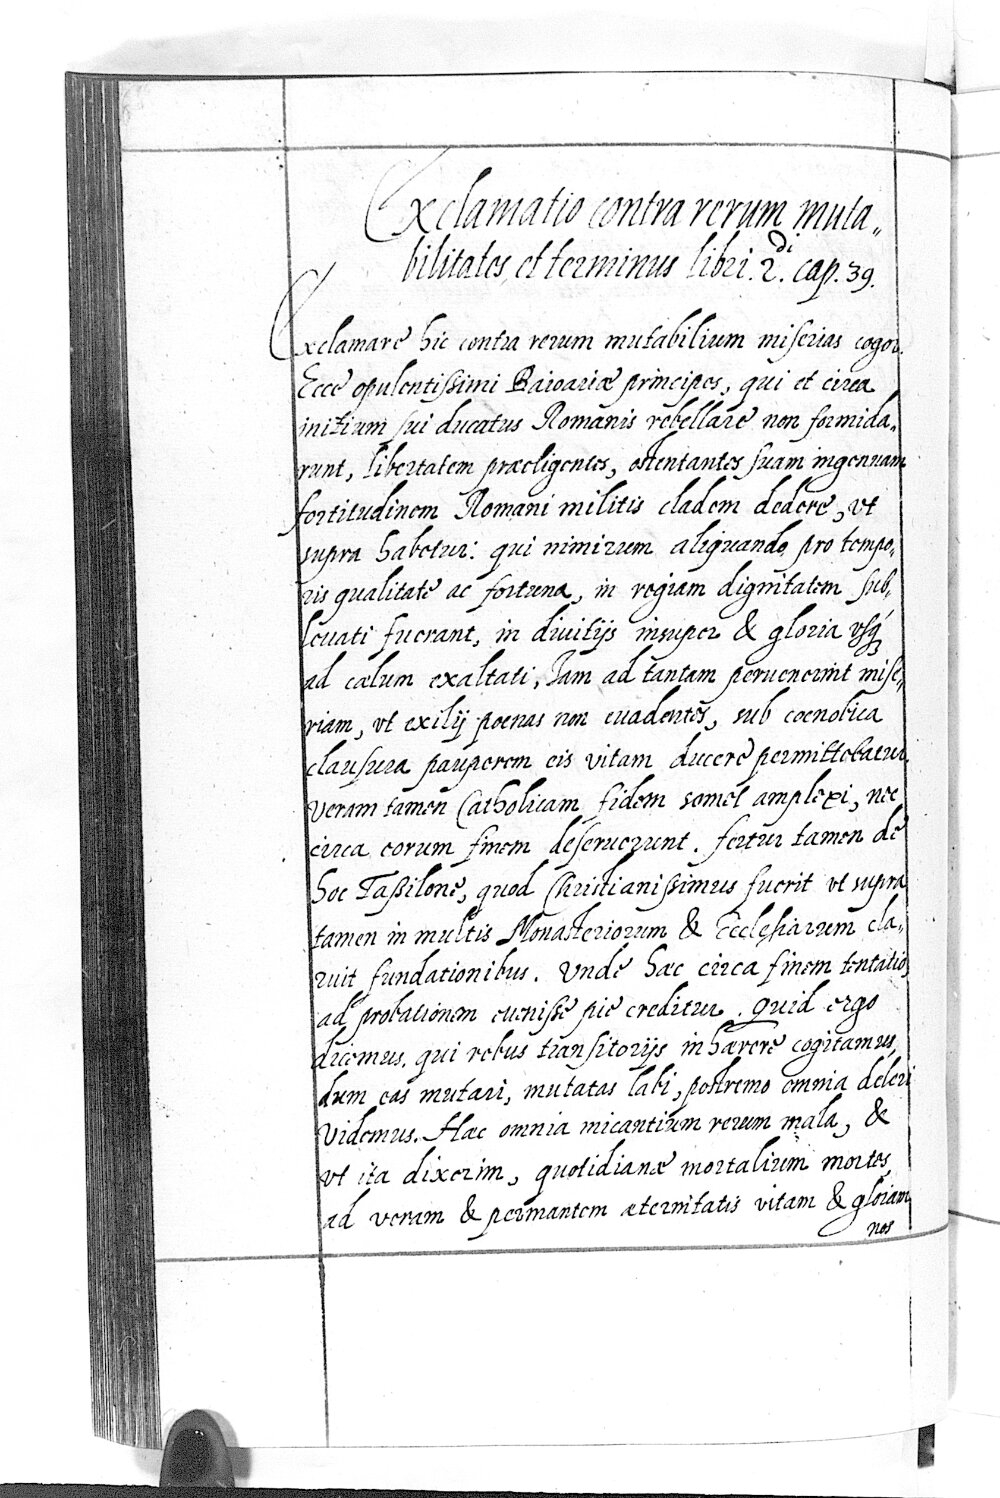 Exclamatio contra rerum muta„
bilitates et terminus libri. 2.di cap. 39.
Exclamare hic contra rerum mutabilium miserias cogor.
Ecce opulentissimi Baioariæ principes, qui et circa
initium sui ducatus Romanis rebellare non formida„
runt, libertatem præeligentes, ostentantes suam ingenuam
fortitudinem Romani militis cladem dedere, vt
supra habetur: qui nimirum aliquando, pro tempo„
ris qualitate ac fortuna, in regiam dignitatem sub„
leuati fuerant, in diuitijs insuper & gloria vsq́
ad cælum exaltati, Iam ad tantam peruenerint mise„
riam, vt exilij poenas non euadentes, sub coenobica
clausura pauperem eis vitam ducere permittebatur.
Veram tamen Catholicam fidem semel amplexi, nec
circa eorum finem deseruerunt. fertur tamen de
hoc Taßilone, quod Christianissimus fuerit vt supra
tamen in multis Monasteriorum & Ecclesiarum cla„
ruit fundationibus. Vnde hæc circa finem tentatio,
ad probationem euenisse pie creditur. Quid ergo
dicemus, qui rebus transitorijs inhærere cogitamus,
dum eas mutari, mutatas labi, postremo omnia deleri
videmus. Hæc omnia micantium rerum mala, &
vt ita dixerim, quotidianæ mortalium mortes,
ad veram & permantem æternitatis vitam & gloriam
nos